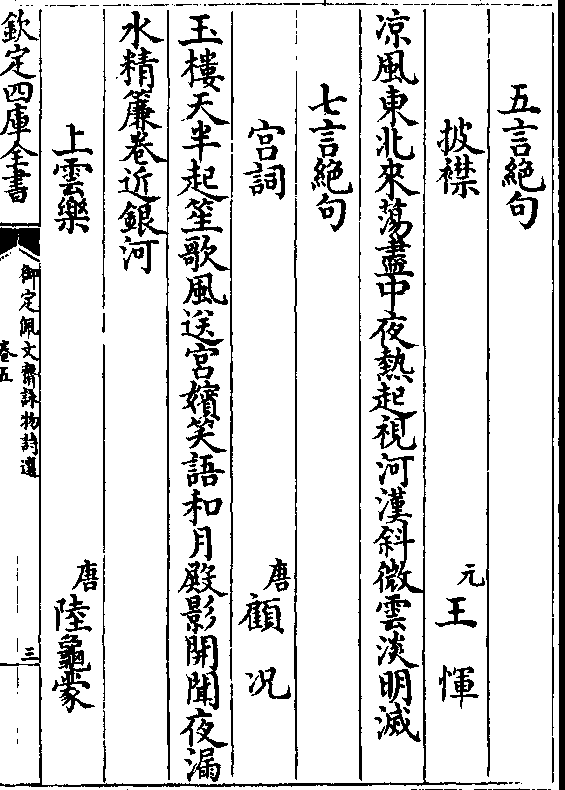 五言絕句
披襟 元 王惲
凉風東北來蕩盡中夜熱起視河漢斜微雲淡明滅
七言絕句
宮詞 唐 顧況
玉樓天半起笙歌風送宮嬪笑語和月殿影開聞夜漏
水精簾卷近銀河
上雲樂 唐 陸龜蒙
欽定四庫全書
御定佩文齋詠物詩選
卷五
三